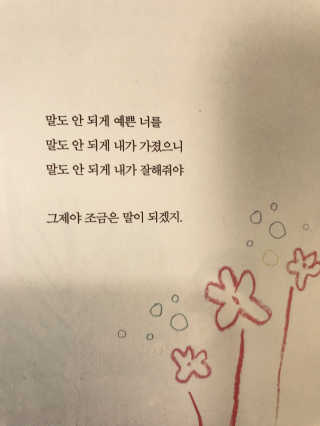 말도 안 되게 예쁜 너를
말도 안 되게 내가 가졌으니
말도 안 되게 내가 잘해줘야
그제야 조금은 말이 되겠지.